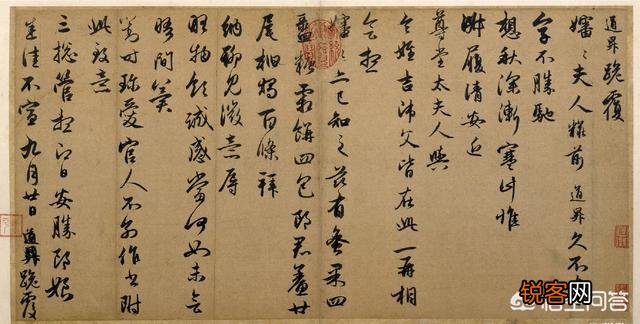 道昇跪覆
嬸〻夫人粧前道昇久不
字不勝馳
想秋深漸寒計惟
淑履清安近
尊堂太夫人與
令姪吉師父皆在此一再相
會想
嬸〻亦已知之茲有蜜果四
盝糖霜餅四包郎君鯗廿
尾柏燭百條拜
納聊見微意辱
略物領誠感當何如未會
晤間冀
對時珍愛官人不別作書附
此致意
三總管想即日安勝郎娘
悉佳不宣九月廿日道昇跪覆
锐客网